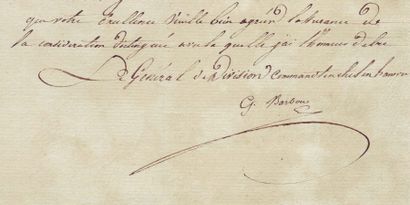 que votre Excellence Veuille bien agréer l'assurance de
la consideration distinguée avec la quelle j'ai l'honneur d'etre
Le Général de Division Commandt en chef en hanovre
G. Barbou